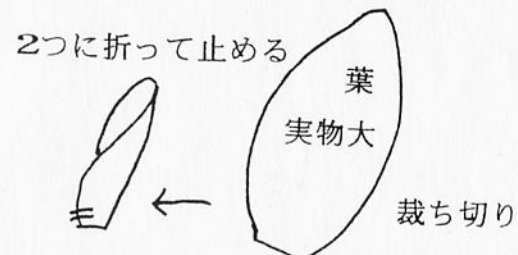 2つに折って止める
葉
実物大
裁ち切り